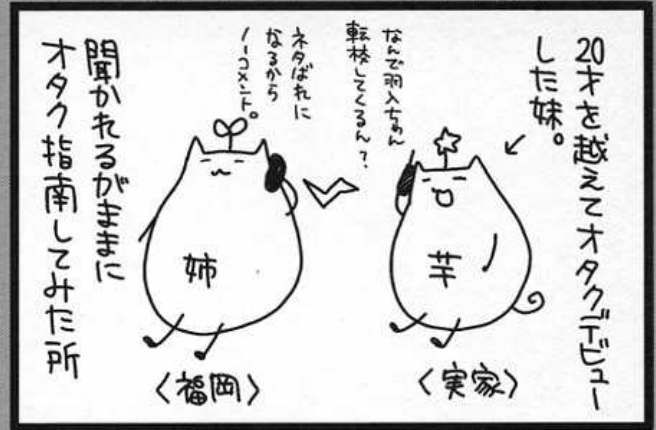 20才を越えてオタクデビュー
した妹。
なんで羽入ちゃん
転校してくるん?
ネタばれに
なるから
ノーコメント。
芋
〈実家〉
姉
〈福岡〉
聞かれるがままに
オタク指南してみた所